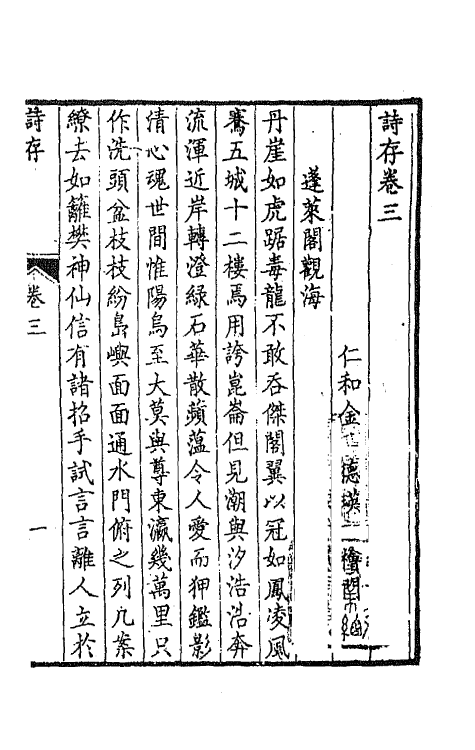 詩存卷三
仁和金德瑛
蓬萊閣觀海
丹崖如虎踞毒龍不敢吞傑閣翼以冠如鳳凌風
騫五城十二樓焉用誇崑崙但見潮與汐浩浩奔
流渾近岸轉澄綠石華散蘋薀令人愛而狎鑑影
清心魂世間惟陽烏至大莫與尊東瀛幾萬里只
作洗頭盆枝枝紛島嶼面面通水門俯之列几案
繚去如籬樊神仙信有諸招手試言言離人立於
詩存
卷三
一